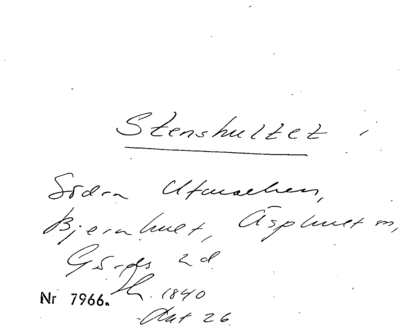 Stenshultet i
Södra Utmarken,
Bjernhult, Äsphult m,
Gärds hd.
Nr 7966. 1840
26